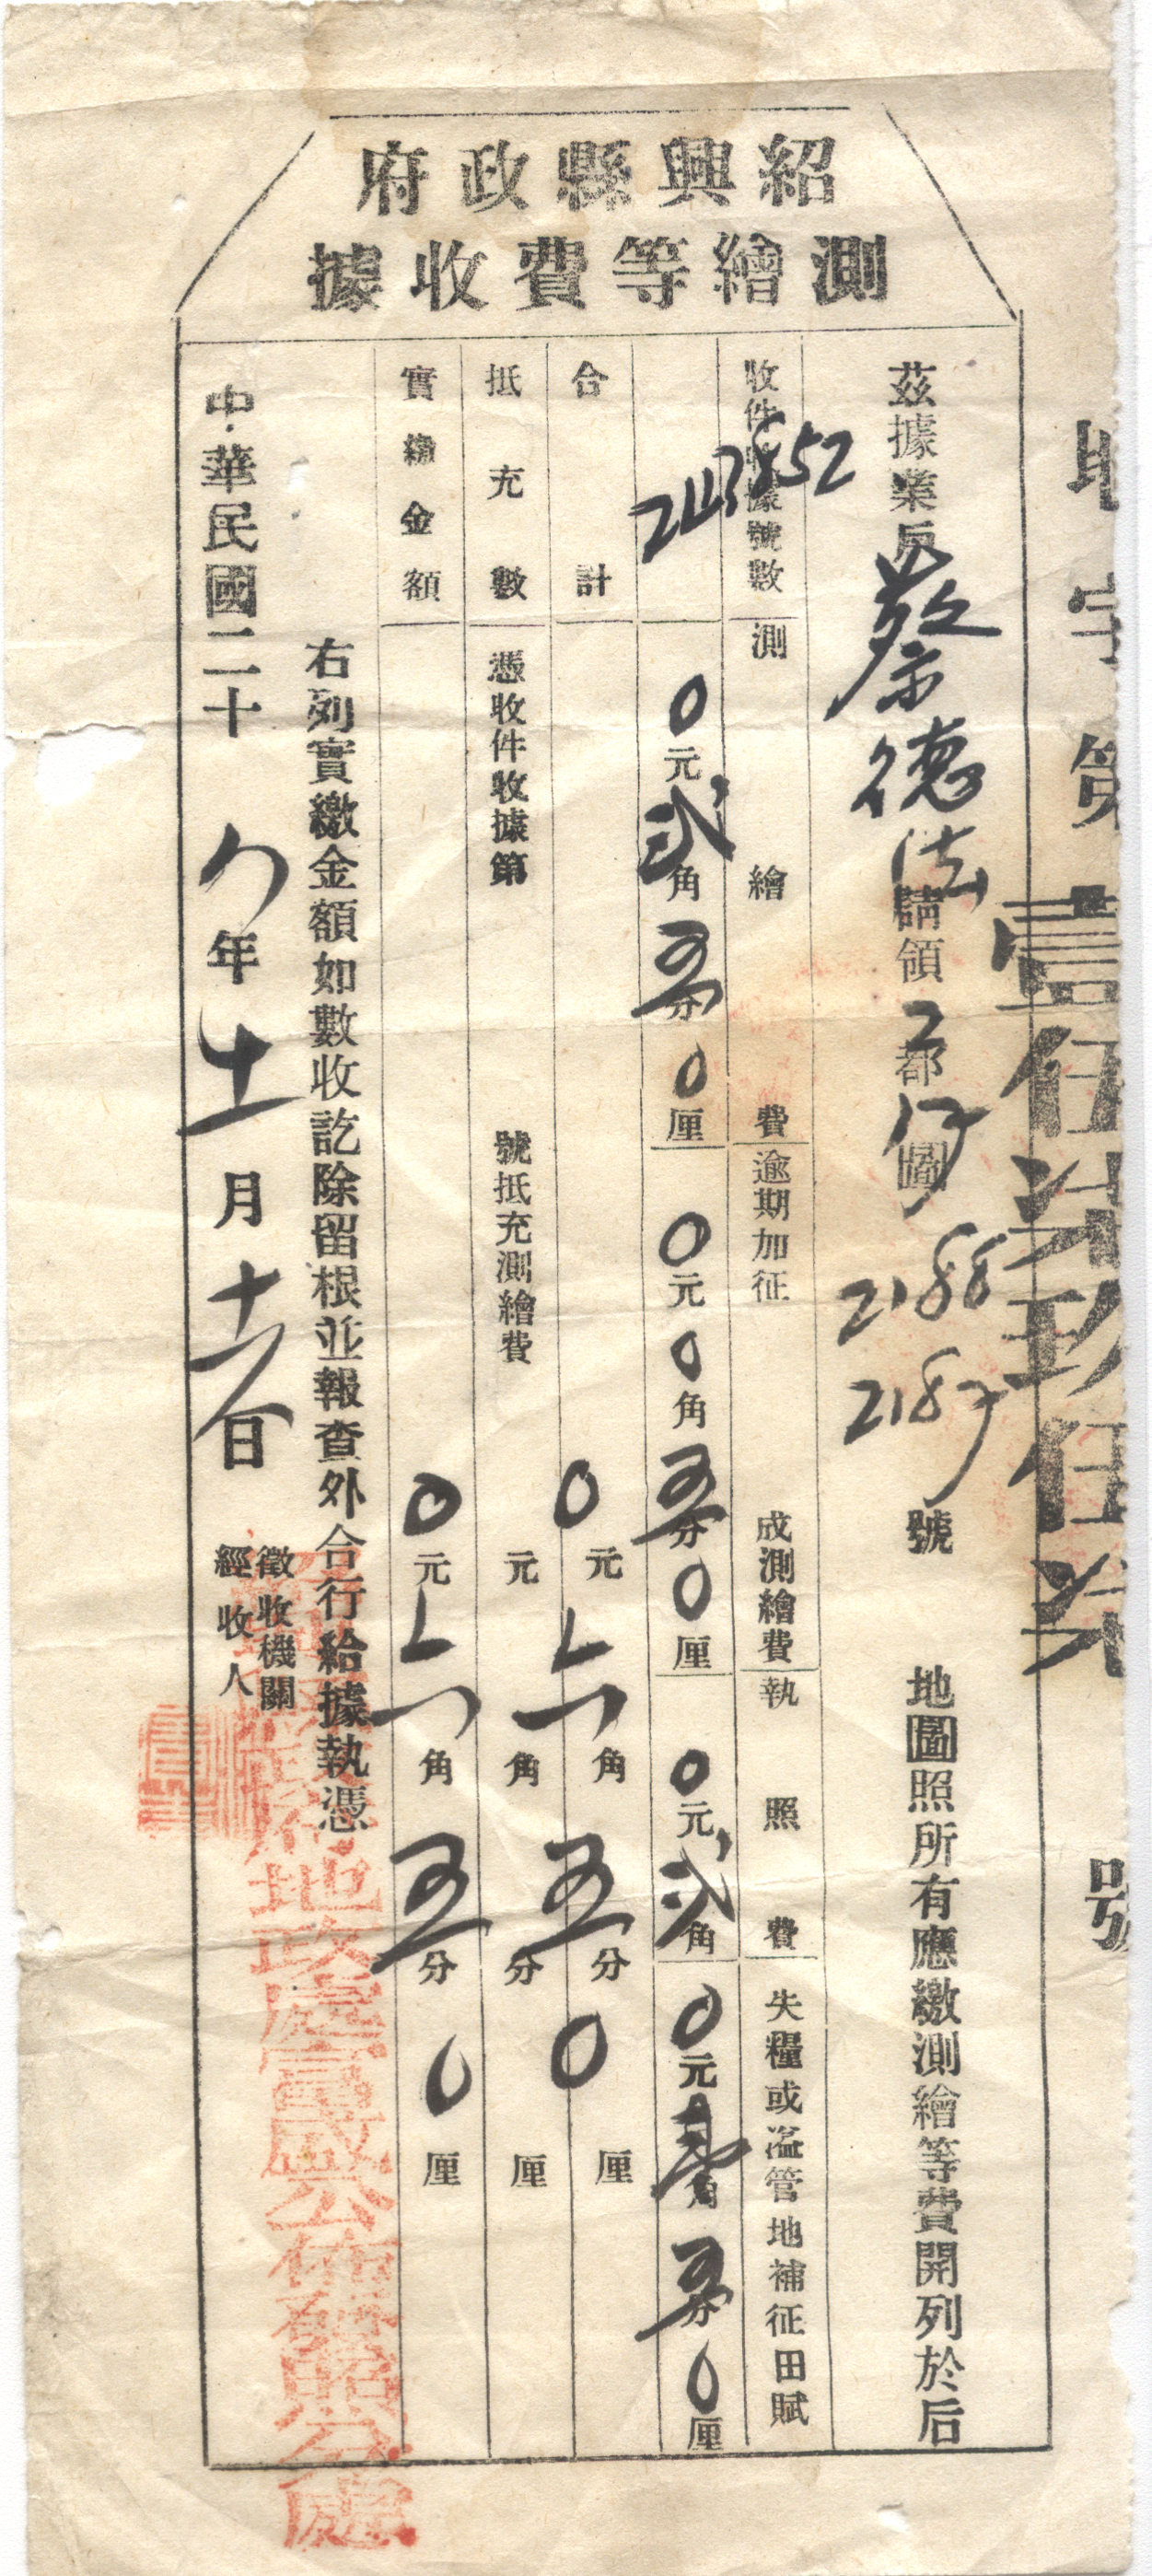 紹興縣政府
測繪等費收據
地字第壹伍柒玖伍柒號
茲據業戶蔡德法請領2都圖2188 2187號地圖照所有應繳測繪等費開列於后
收件收據號數
測繪費
逾期加征成測繪費
執照費
失糧或溢管地補征田賦
0元貳角五分0厘
0元0角五分0厘
0元貳角
0元壹角五分0厘
合計
0元六角五分0厘
抵充數
憑收件收據第 號抵充測繪費 元 角 分 厘
實繳金額
0元六角五分0厘
右列實繳金額如數收訖除留根並報查外合行給據執憑
中華民國二十 年十一月 日
徵收機關
經收人
地政處富盛公佈發照分處